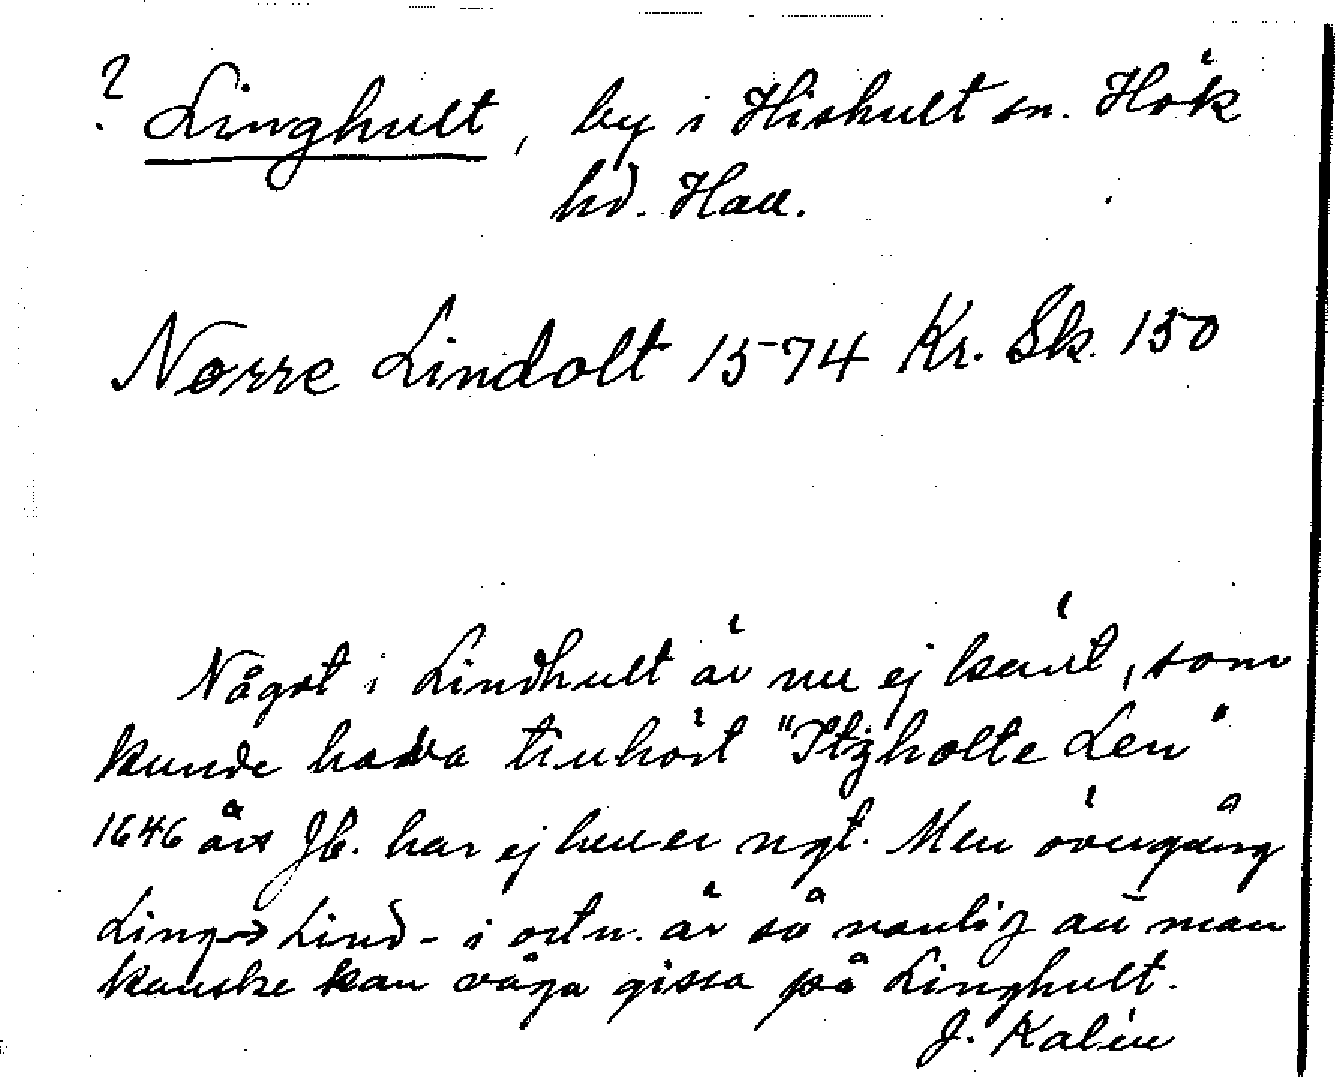 ? Linghult, by i Hishult sn. Hök
hd. Hall.
Norre Lindolt 1574 Kr. Sk. 150
Något i Lindhult är nu ej känt, som
kunde hava tillhört "Itzholte Len"
1646 års Jb. har ej heller ngt. Men övergång
Ling→ Lind- i ortn. är så vanlig att man
kanske kan våga gissa på Linghult.
J. Kalén